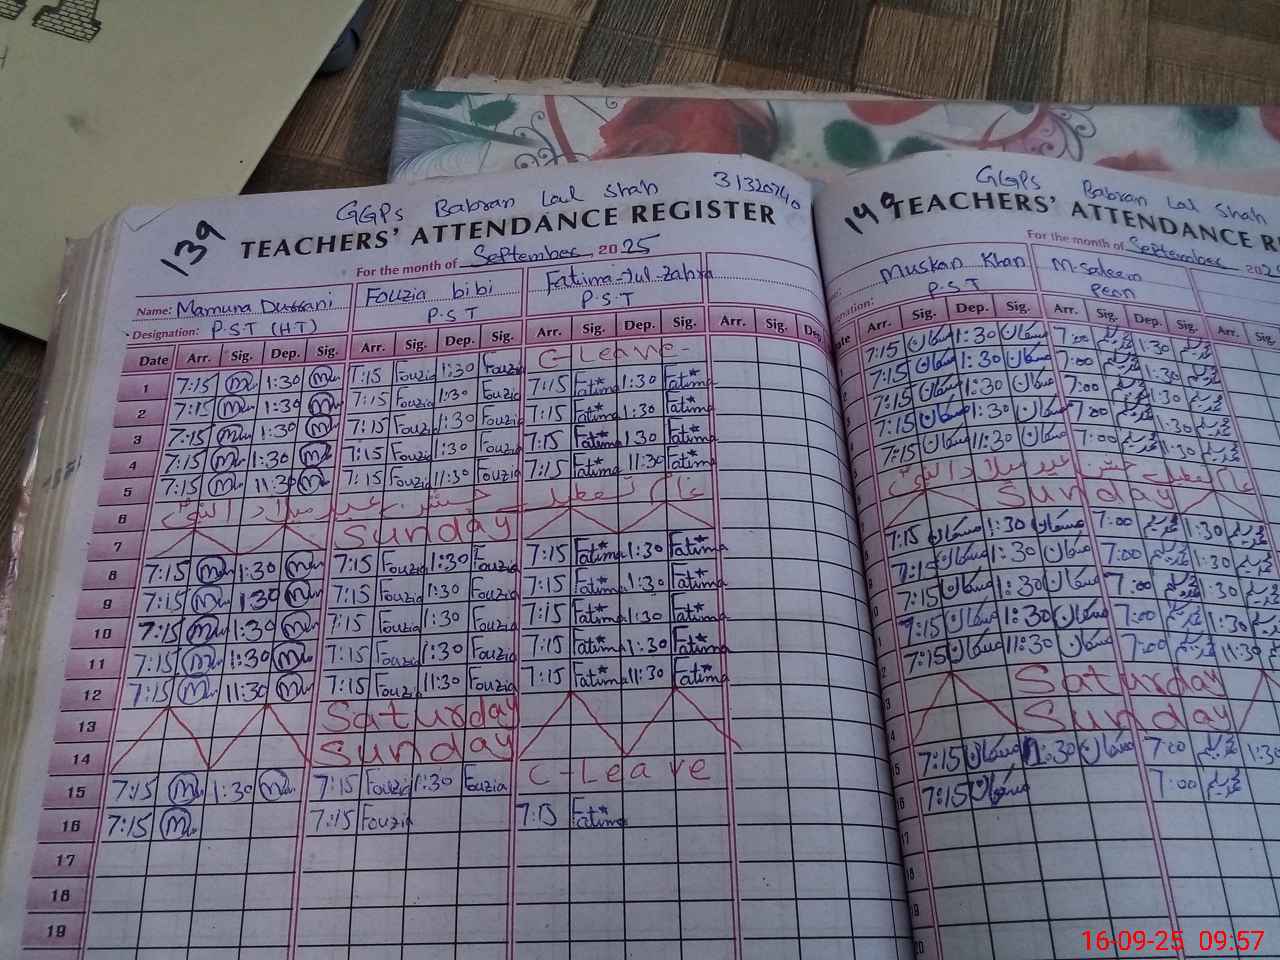 139
GGPS Babran Lal Shah 31320740
TEACHERS' ATTENDANCE REGISTER
For the month of September 2025
Name: Mamuna Durrani Fouzia bibi Fatima-tul-zahra
Designation: P.S.T (HT) P.S.T P.S.T
Date Arr. Sig. Dep. Sig. Arr. Sig. Dep. Sig. Arr. Sig. Dep. Sig. Arr. Sig. Dep
1 7:15 1:30 7:15 Fouzia 1:30 Fouzia C-Leave-
2 7:15 1:30 7:15 Fouzia 1:30 Fouzia 7:15 Fatima 1:30 Fatima
3 7:15 1:30 7:15 Fouzia 1:30 Fouzia 7:15 Fatima 1:30 Fatima
4 7:15 1:30 7:15 Fouzia 1:30 Fouzia 7:15 Fatima 1:30 Fatima
5 7:15 11:30 7:15 Fouzia 11:30 Fouzia 7:15 Fatima 11:30 Fatima
6 عام تعطیل جشن عید میلاد النبیؐ
7 Sunday
8 7:15 1:30 7:15 Fouzia 1:30 Fouzia 7:15 Fatima 1:30 Fatima
9 7:15 1:30 7:15 Fouzia 1:30 Fouzia 7:15 Fatima 1:30 Fatima
10 7:15 1:30 7:15 Fouzia 1:30 Fouzia 7:15 Fatima 1:30 Fatima
11 7:15 1:30 7:15 Fouzia 1:30 Fouzia 7:15 Fatima 1:30 Fatima
12 7:15 11:30 7:15 Fouzia 11:30 Fouzia 7:15 Fatima 11:30 Fatima
13 Saturday
14 Sunday
15 7:15 1:30 7:15 Fouzia 1:30 Fouzia C-Leave
16 7:15 7:15 Fouzia 7:15 Fatima
17
18
19
GGPS Babran Lal Shah
TEACHERS' ATTENDANCE R
For the month of September 202
Muskan Khan M.Saleem
P.S.T Peon
Arr. Sig. Dep. Sig. Arr. Sig. Dep. Sig. Arr. Sig
7:15 مسکان 1:30 مسکان 7:00 1:30
7:15 مسکان 1:30 مسکان 7:00 1:30
7:15 مسکان 1:30 مسکان 7:00 1:30
7:15 مسکان 1:30 مسکان 7:00 1:30
7:15 مسکان 11:30 مسکان 7:00 11:30
عام تعطیل جشن عید میلاد النبیؐ
Sunday
7:15 مسکان 1:30 مسکان 7:00 1:30
7:15 مسکان 1:30 مسکان 7:00 1:30
7:15 مسکان 1:30 مسکان 7:00 1:30
7:15 مسکان 1:30 مسکان 7:00 1:30
7:15 مسکان 11:30 مسکان 7:00 11:30
Saturday
Sunday
7:15 مسکان 1:30 مسکان 7:00 1:30
7:15 مسکان 7:00
17
18
19
20
16-09-25 09:57